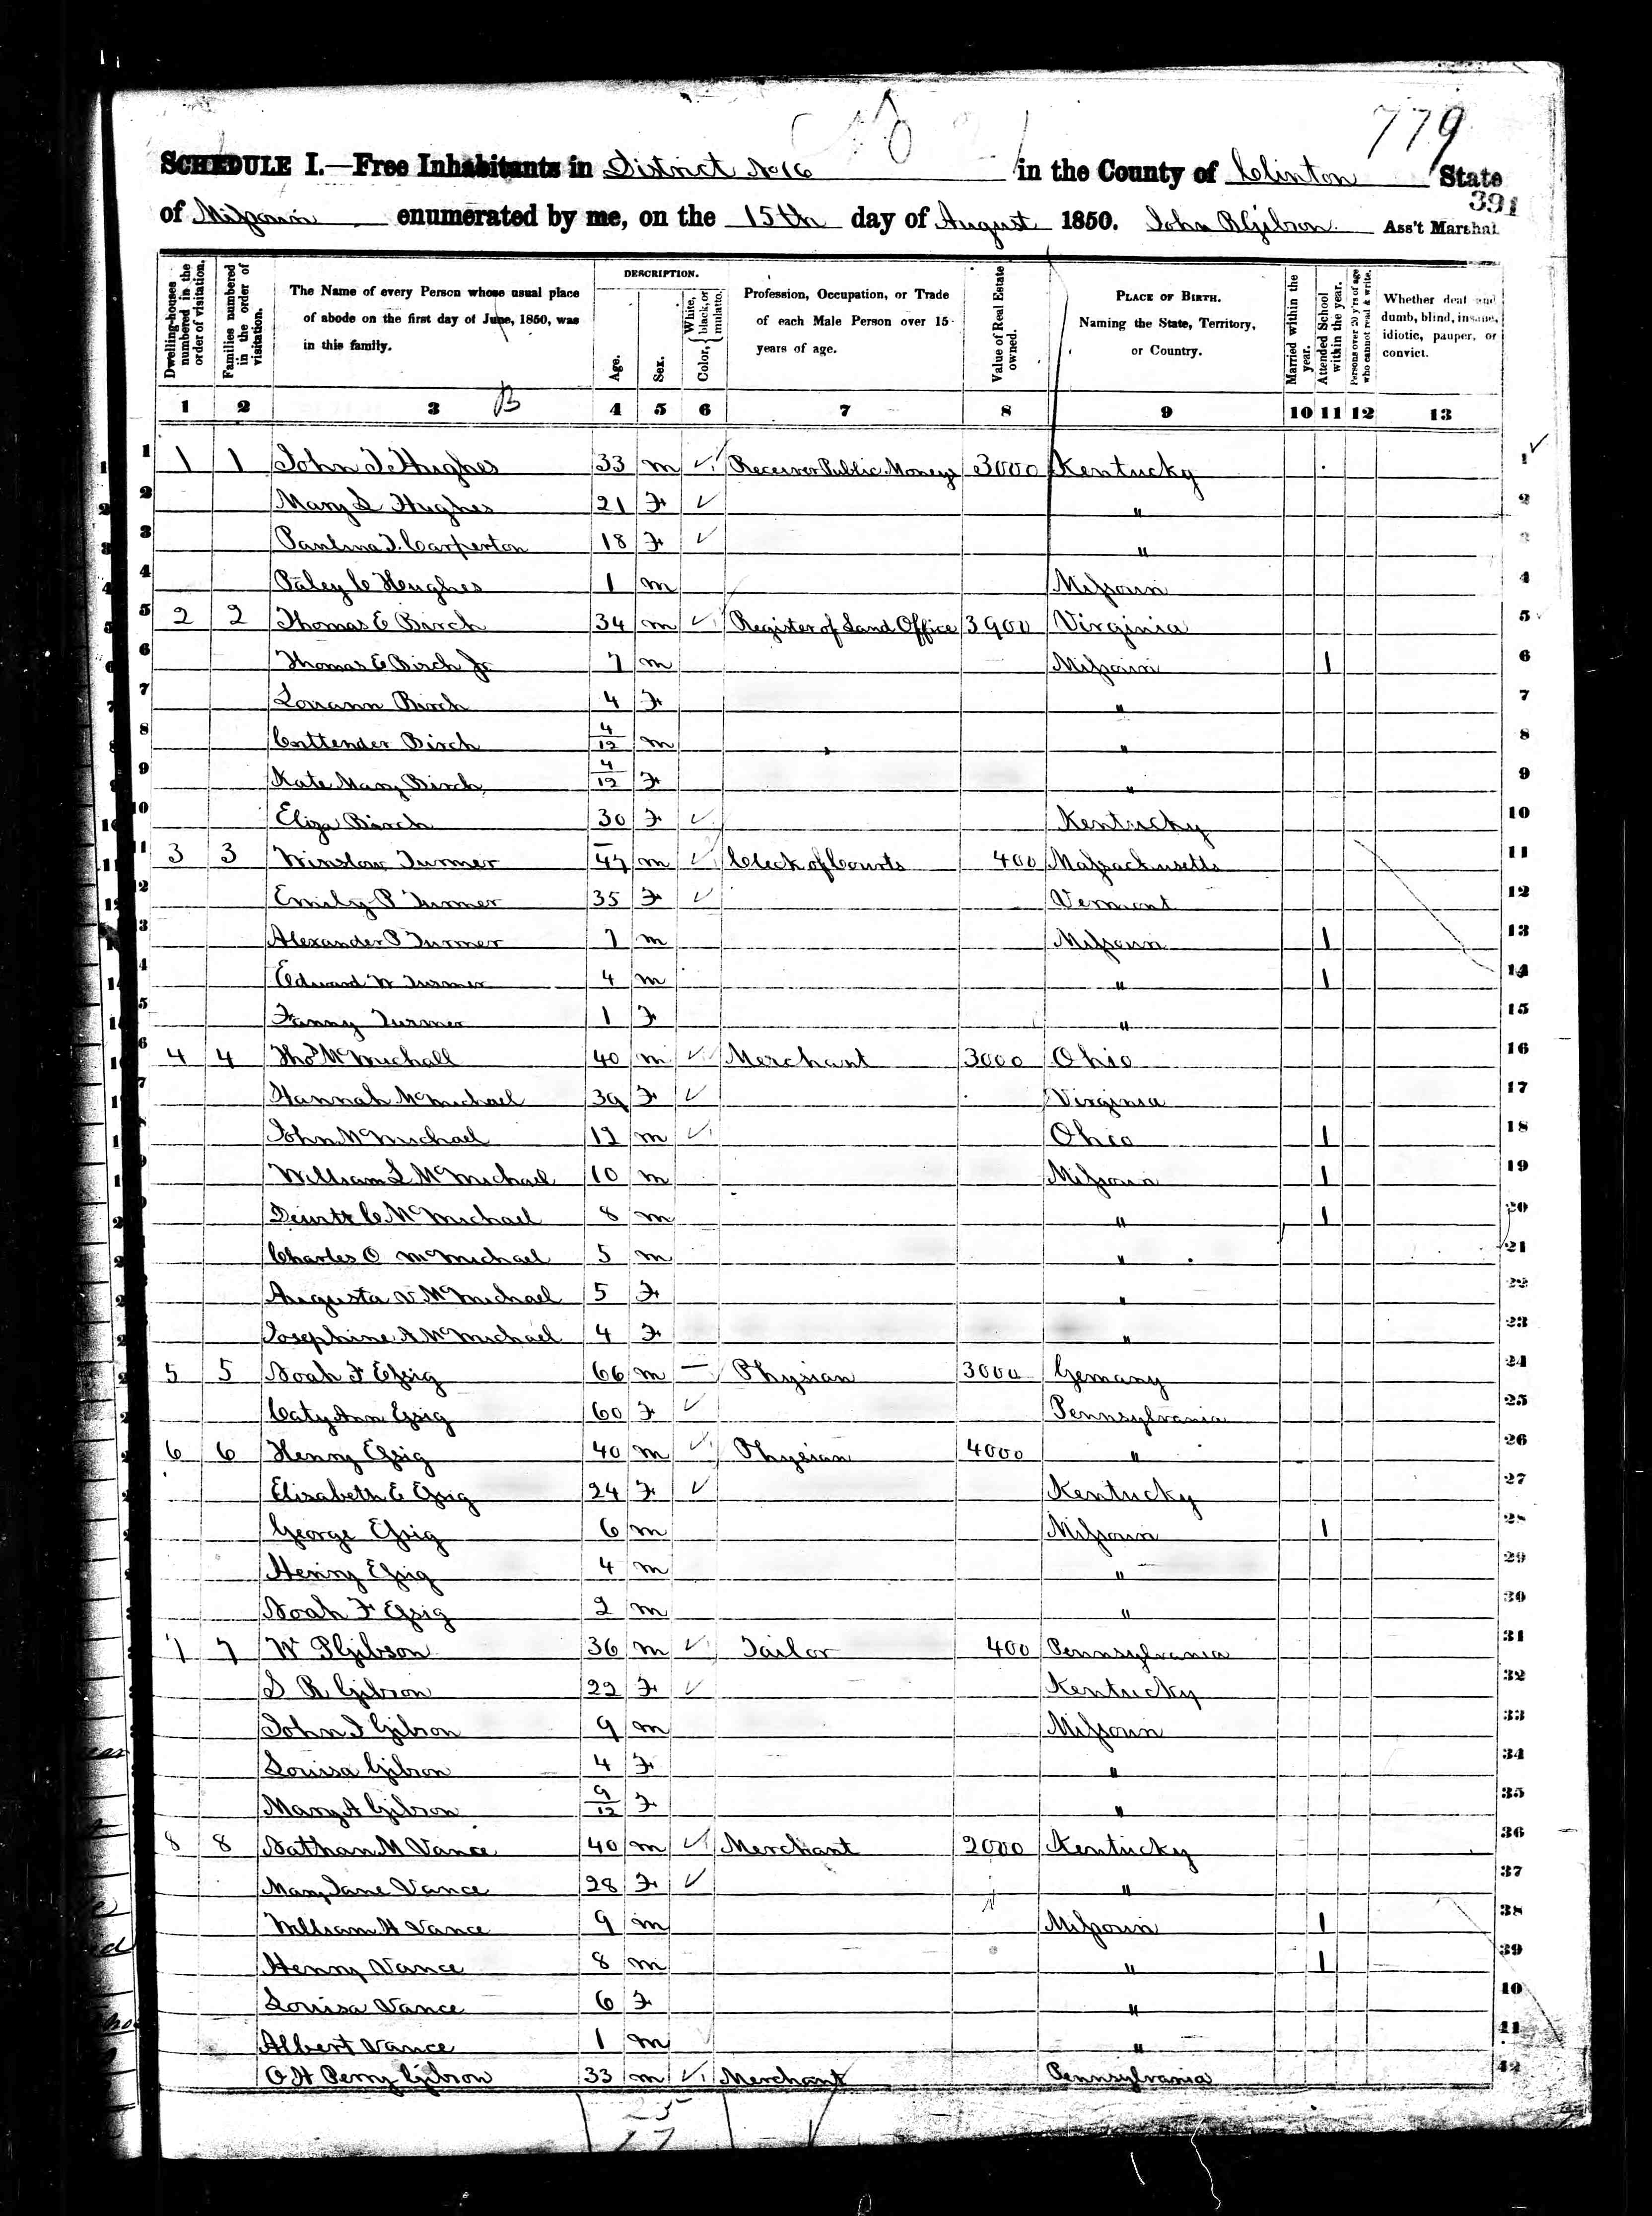 779
SCHEDULE I.—Free Inhabitants in District No 16 in the County of Clinton State
391
of Missouri enumerated by me, on the 15th day of August 1850. John R Gibson Ass't Marshal
Dwelling-houses numbered in the order of visitation.
Families numbered in the order of visitation.
The Name of every Person whose usual place of abode on the first day of June, 1850, was in this family.
DESCRIPTION.
Age.
Sex.
Color, { White, black, or mulatto.
Profession, Occupation, or Trade of each Male Person over 15 years of age.
Value of Real Estate owned.
PLACE OF BIRTH. Naming the State, Territory, or Country.
Married within the year.
Attended School within the year.
Persons over 20 y'rs of age who cannot read & write.
Whether deaf and dumb, blind, insane, idiotic, pauper, or convict.
1 2 3 B 4 5 6 7 8 9 10 11 12 13
1 1 1 John T Hughes 33 m Receiver Public Moneys 3000 Kentucky 1
2 Mary L Hughes 21 F " 2
3 Paulina T. Carperton 18 F " 3
4 Paley C Hughes 1 m Missouri 4
5 2 2 Thomas E Birch 34 m Register of Land Office 3900 Virginia 5
6 Thomas E Birch Jr 7 m Missouri 1 6
7 Louann Birch 4 F " 7
8 Crittender Birch 4/12 m " 8
9 Kate Mary Birch 4/12 F " 9
10 Eliza Birch 30 F Kentucky 10
11 3 3 Winslow Turner 47 m Cleck of Courts 400 Massachusetts 11
12 Emily P Turner 35 F Vermont 12
13 Alexander P Turner 7 m Missouri 1 13
14 Edward W Turner 4 m " 1 14
15 Fanny Turner 1 F " 15
16 4 4 Thos McMichall 40 m Merchant 3000 Ohio 16
17 Hannah McMichael 39 F Virginia 17
18 John McMichael 12 m Ohio 1 18
19 William L McMichael 10 m Missouri 1 19
20 C McMichael 8 m " 1 20
21 Charles O McMichael 5 m " 21
22 Augusta V McMichael 5 F " 22
23 Josephine A McMichael 4 F " 23
24 5 5 Noah F Essig 66 m — Physian 3000 Gemany 24
25 Caty Ann Essig 60 F Pennsylvania 25
26 6 6 Henry Essig 40 m Physian 4000 " 26
27 Elisabeth E Essig 24 F Kentucky 27
28 George Essig 6 m Missouri 1 28
29 Henry Essig 4 m " 29
30 Noah F Essig 2 m " 30
31 7 7 W P Gibson 36 m Tailor 400 Pennsylvania 31
32 S R Gibson 22 F Kentucky 32
33 John I Gibson 9 m Missouri 33
34 Louisa Gibson 4 F " 34
35 Mary A Gibson 9/12 F " 35
36 8 8 Nathan M Vance 40 m Merchant 2000 Kentucky 36
37 Mary Jane Vance 28 F " 37
38 William H Vance 9 m Missouri 1 38
39 Henry Vance 8 m " 1 39
40 Louisa Vance 6 F " 40
41 Albert Vance 1 m " 41
42 O H Perry Gibson 33 m Merchant Pennsylvania 42
25
17